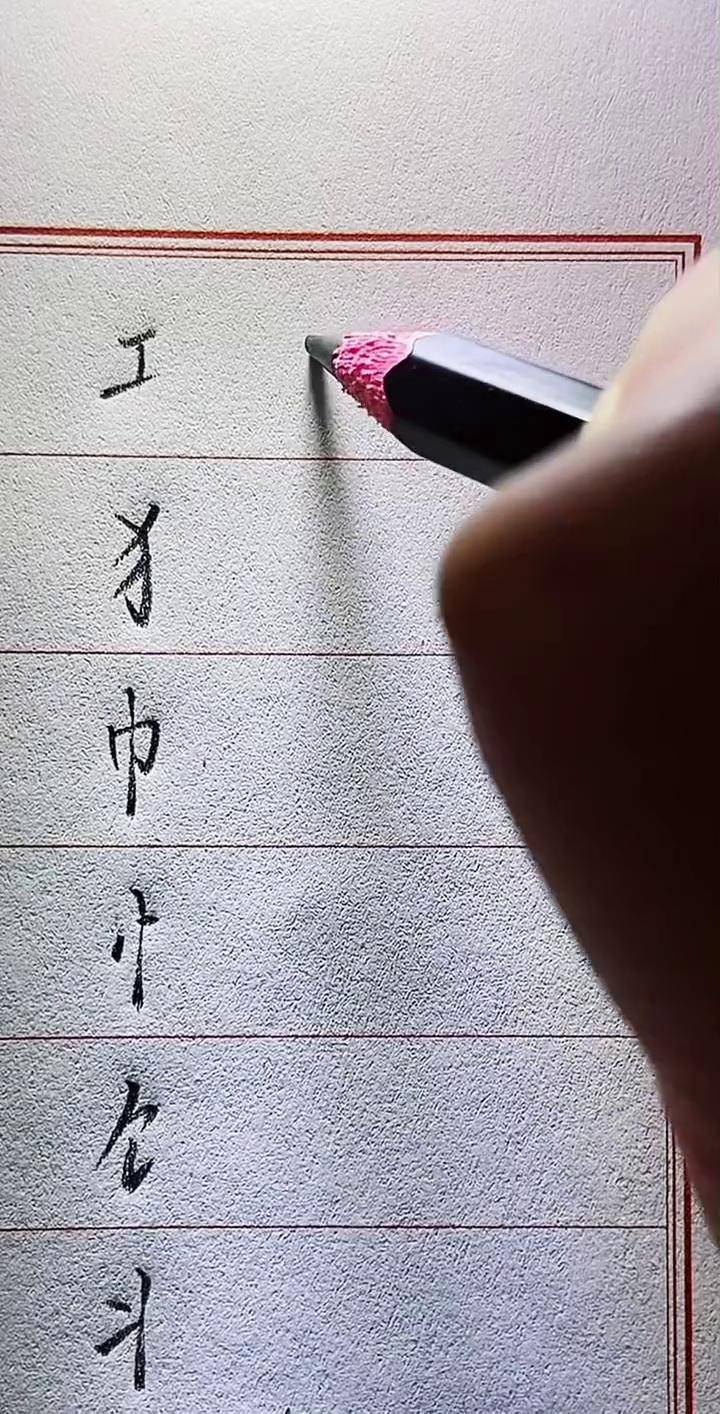 工
犭
巾
忄
饣
丬